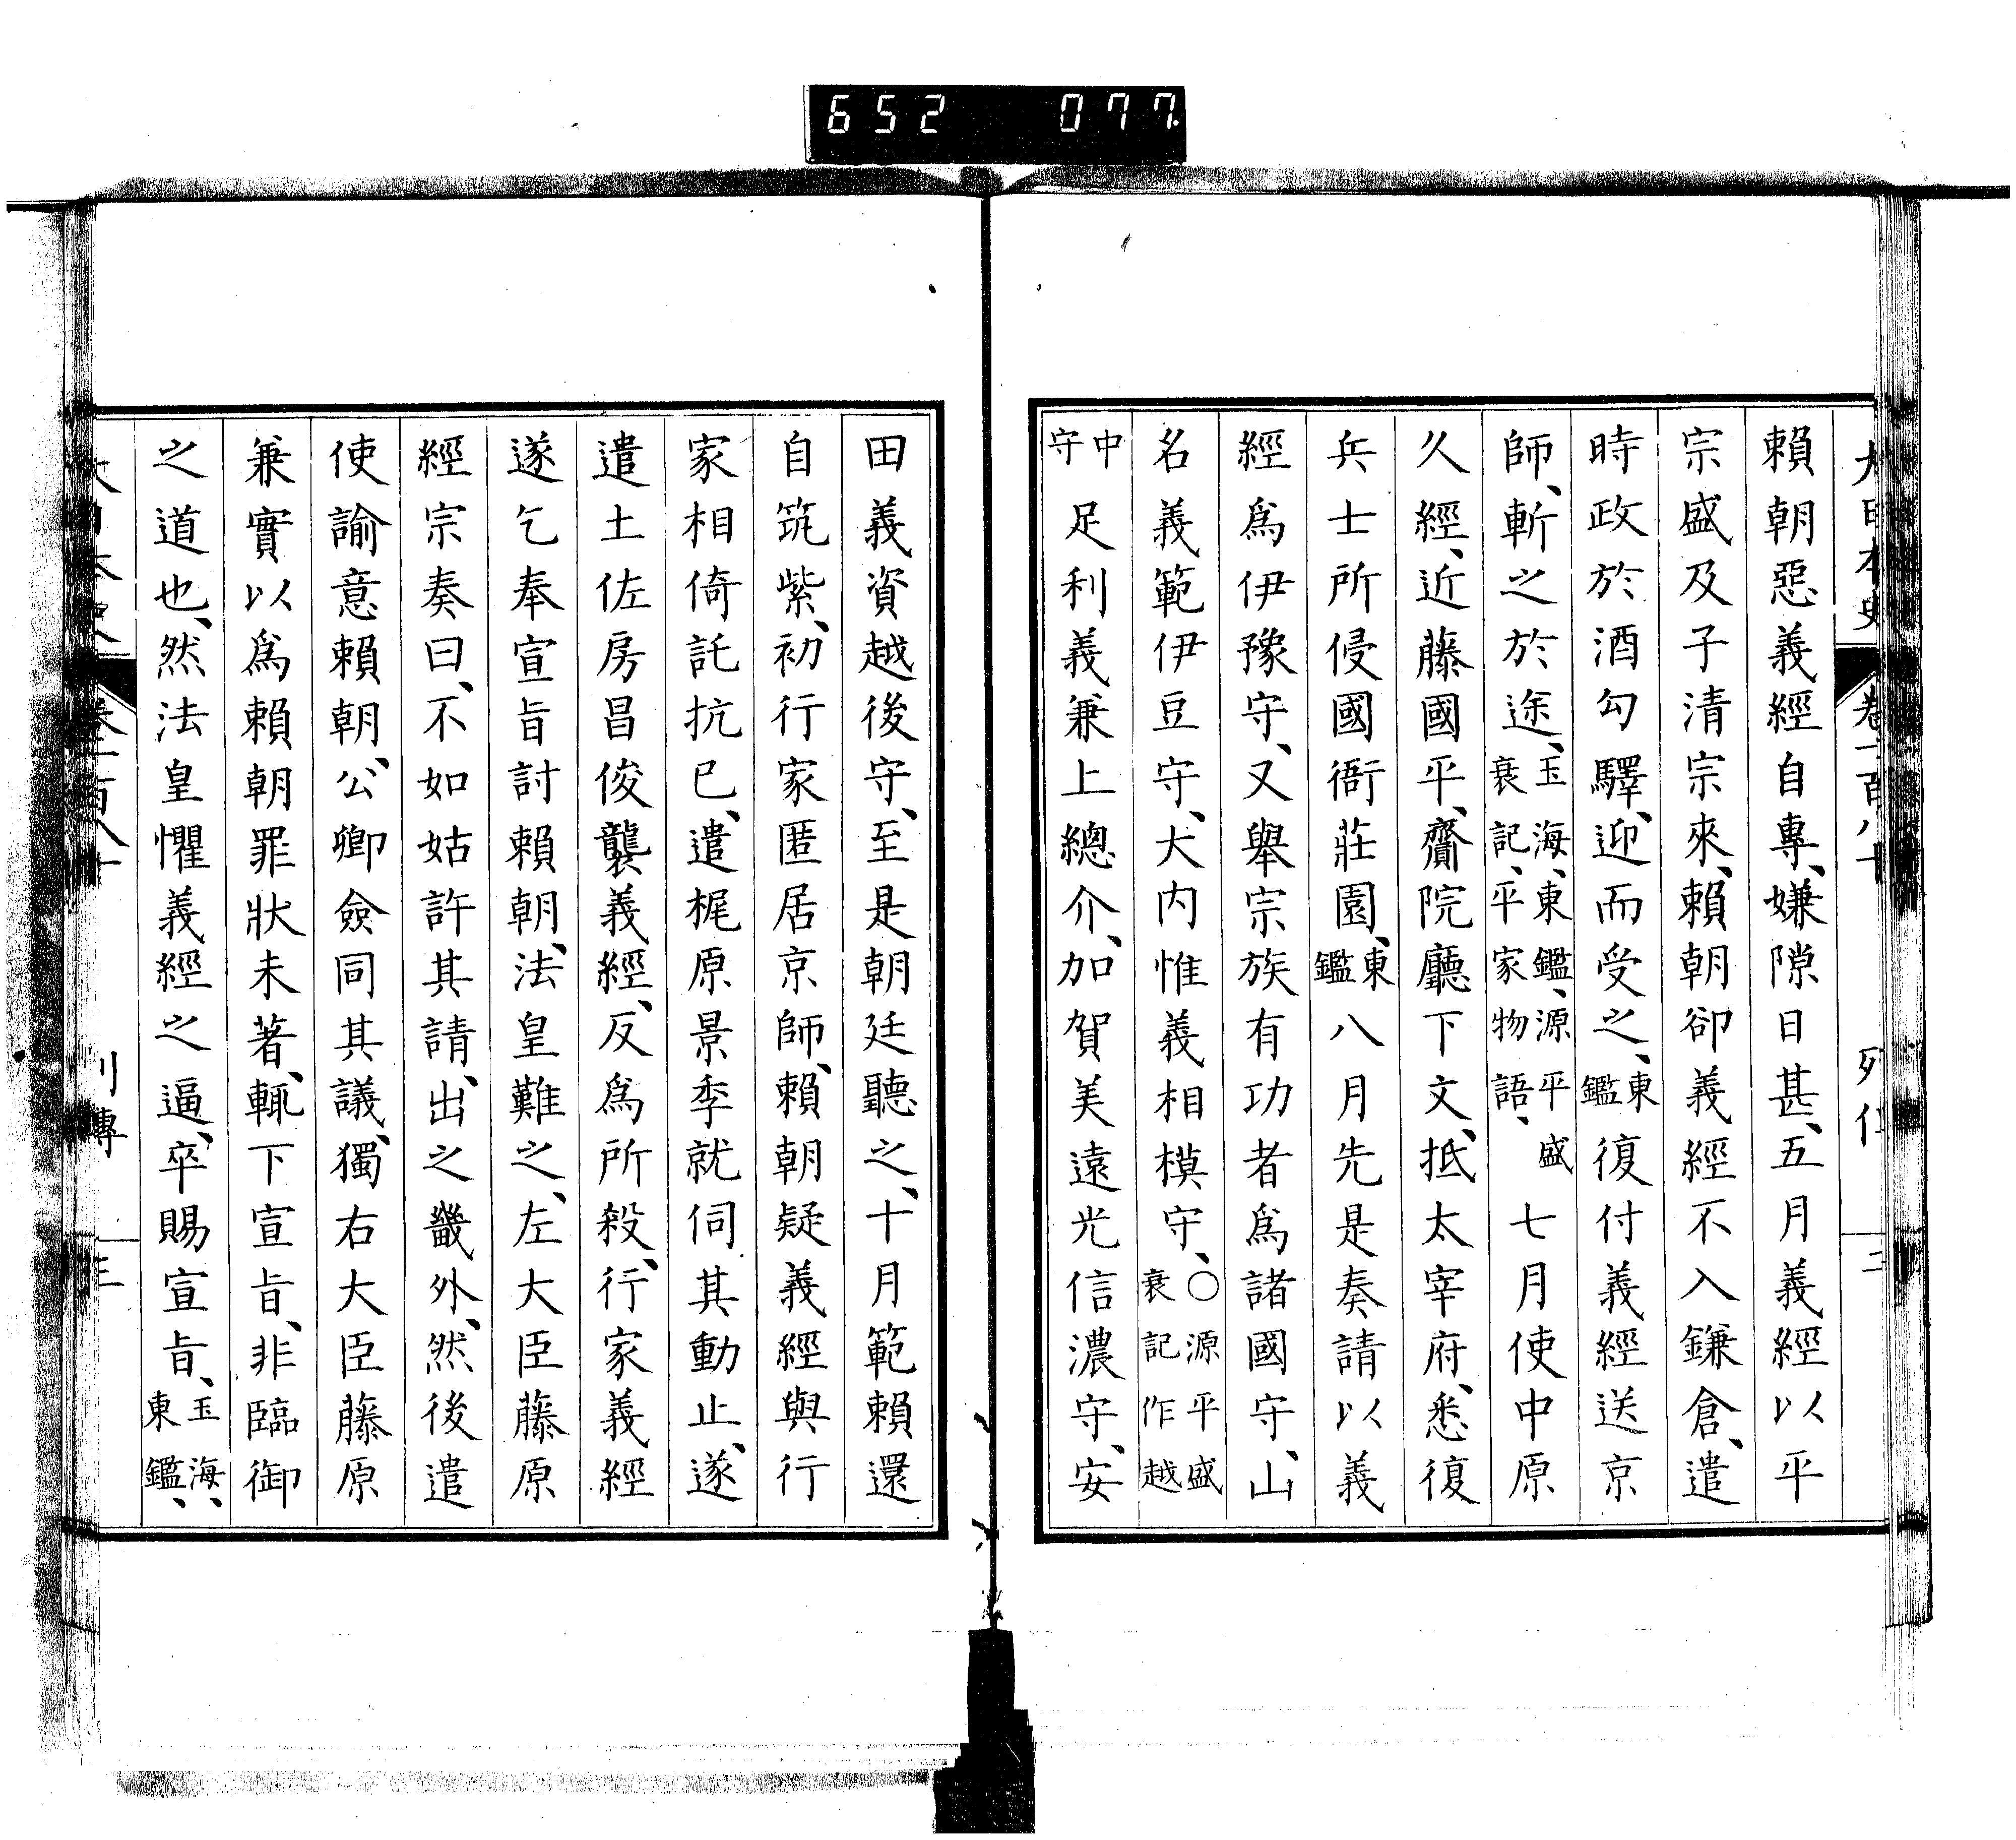 652 077
大日本史 卷一百八十 列傳
賴朝惡義經自專、嫌隙日甚、五月義經以平
宗盛及子清宗來、賴朝卻義經不入鎌倉、遣
時政於酒勾驛、迎而受之、東鑑復付義經送京
師、斬之於途、玉海、東鑑、源平盛衰記、平家物語、七月使中原
久經、近藤國平、齎院廳下文、抵太宰府、悉復
兵士所侵國衙莊園、東鑑八月先是奏請以義
經爲伊豫守、又舉宗族有功者爲諸國守、山
名義範伊豆守、大内惟義相模守、〇源平盛衰記作越
中守足利義兼上總介、加賀美遠光信濃守、安
田義資越後守、至是朝廷聽之、十月範賴還
自筑紫、初行家匿居京師、賴朝疑義經與行
家相倚託抗己、遣梶原景季就伺其動止、遂
遣土佐房昌俊襲義經、反爲所殺、行家義經
遂乞奉宣旨討賴朝、法皇難之、左大臣藤原
經宗奏曰、不如姑許其請、出之畿外、然後遣
使諭意賴朝、公卿僉同其議、獨右大臣藤原
兼實以爲賴朝罪狀未著、輒下宣旨、非臨御
之道也、然法皇懼義經之逼、卒賜宣旨、玉海、東鑑、